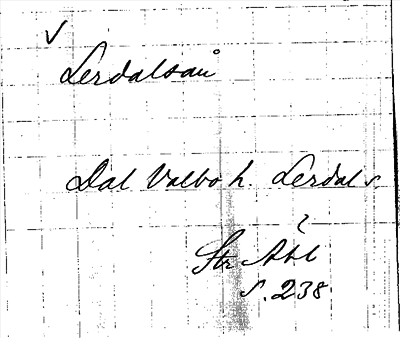 ✓
Lerdalsån
Dal Valbo h. Lerdal s.
Str Åbl
s. 238